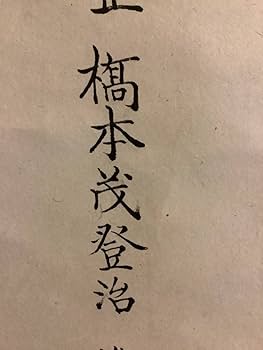 橋本茂登治